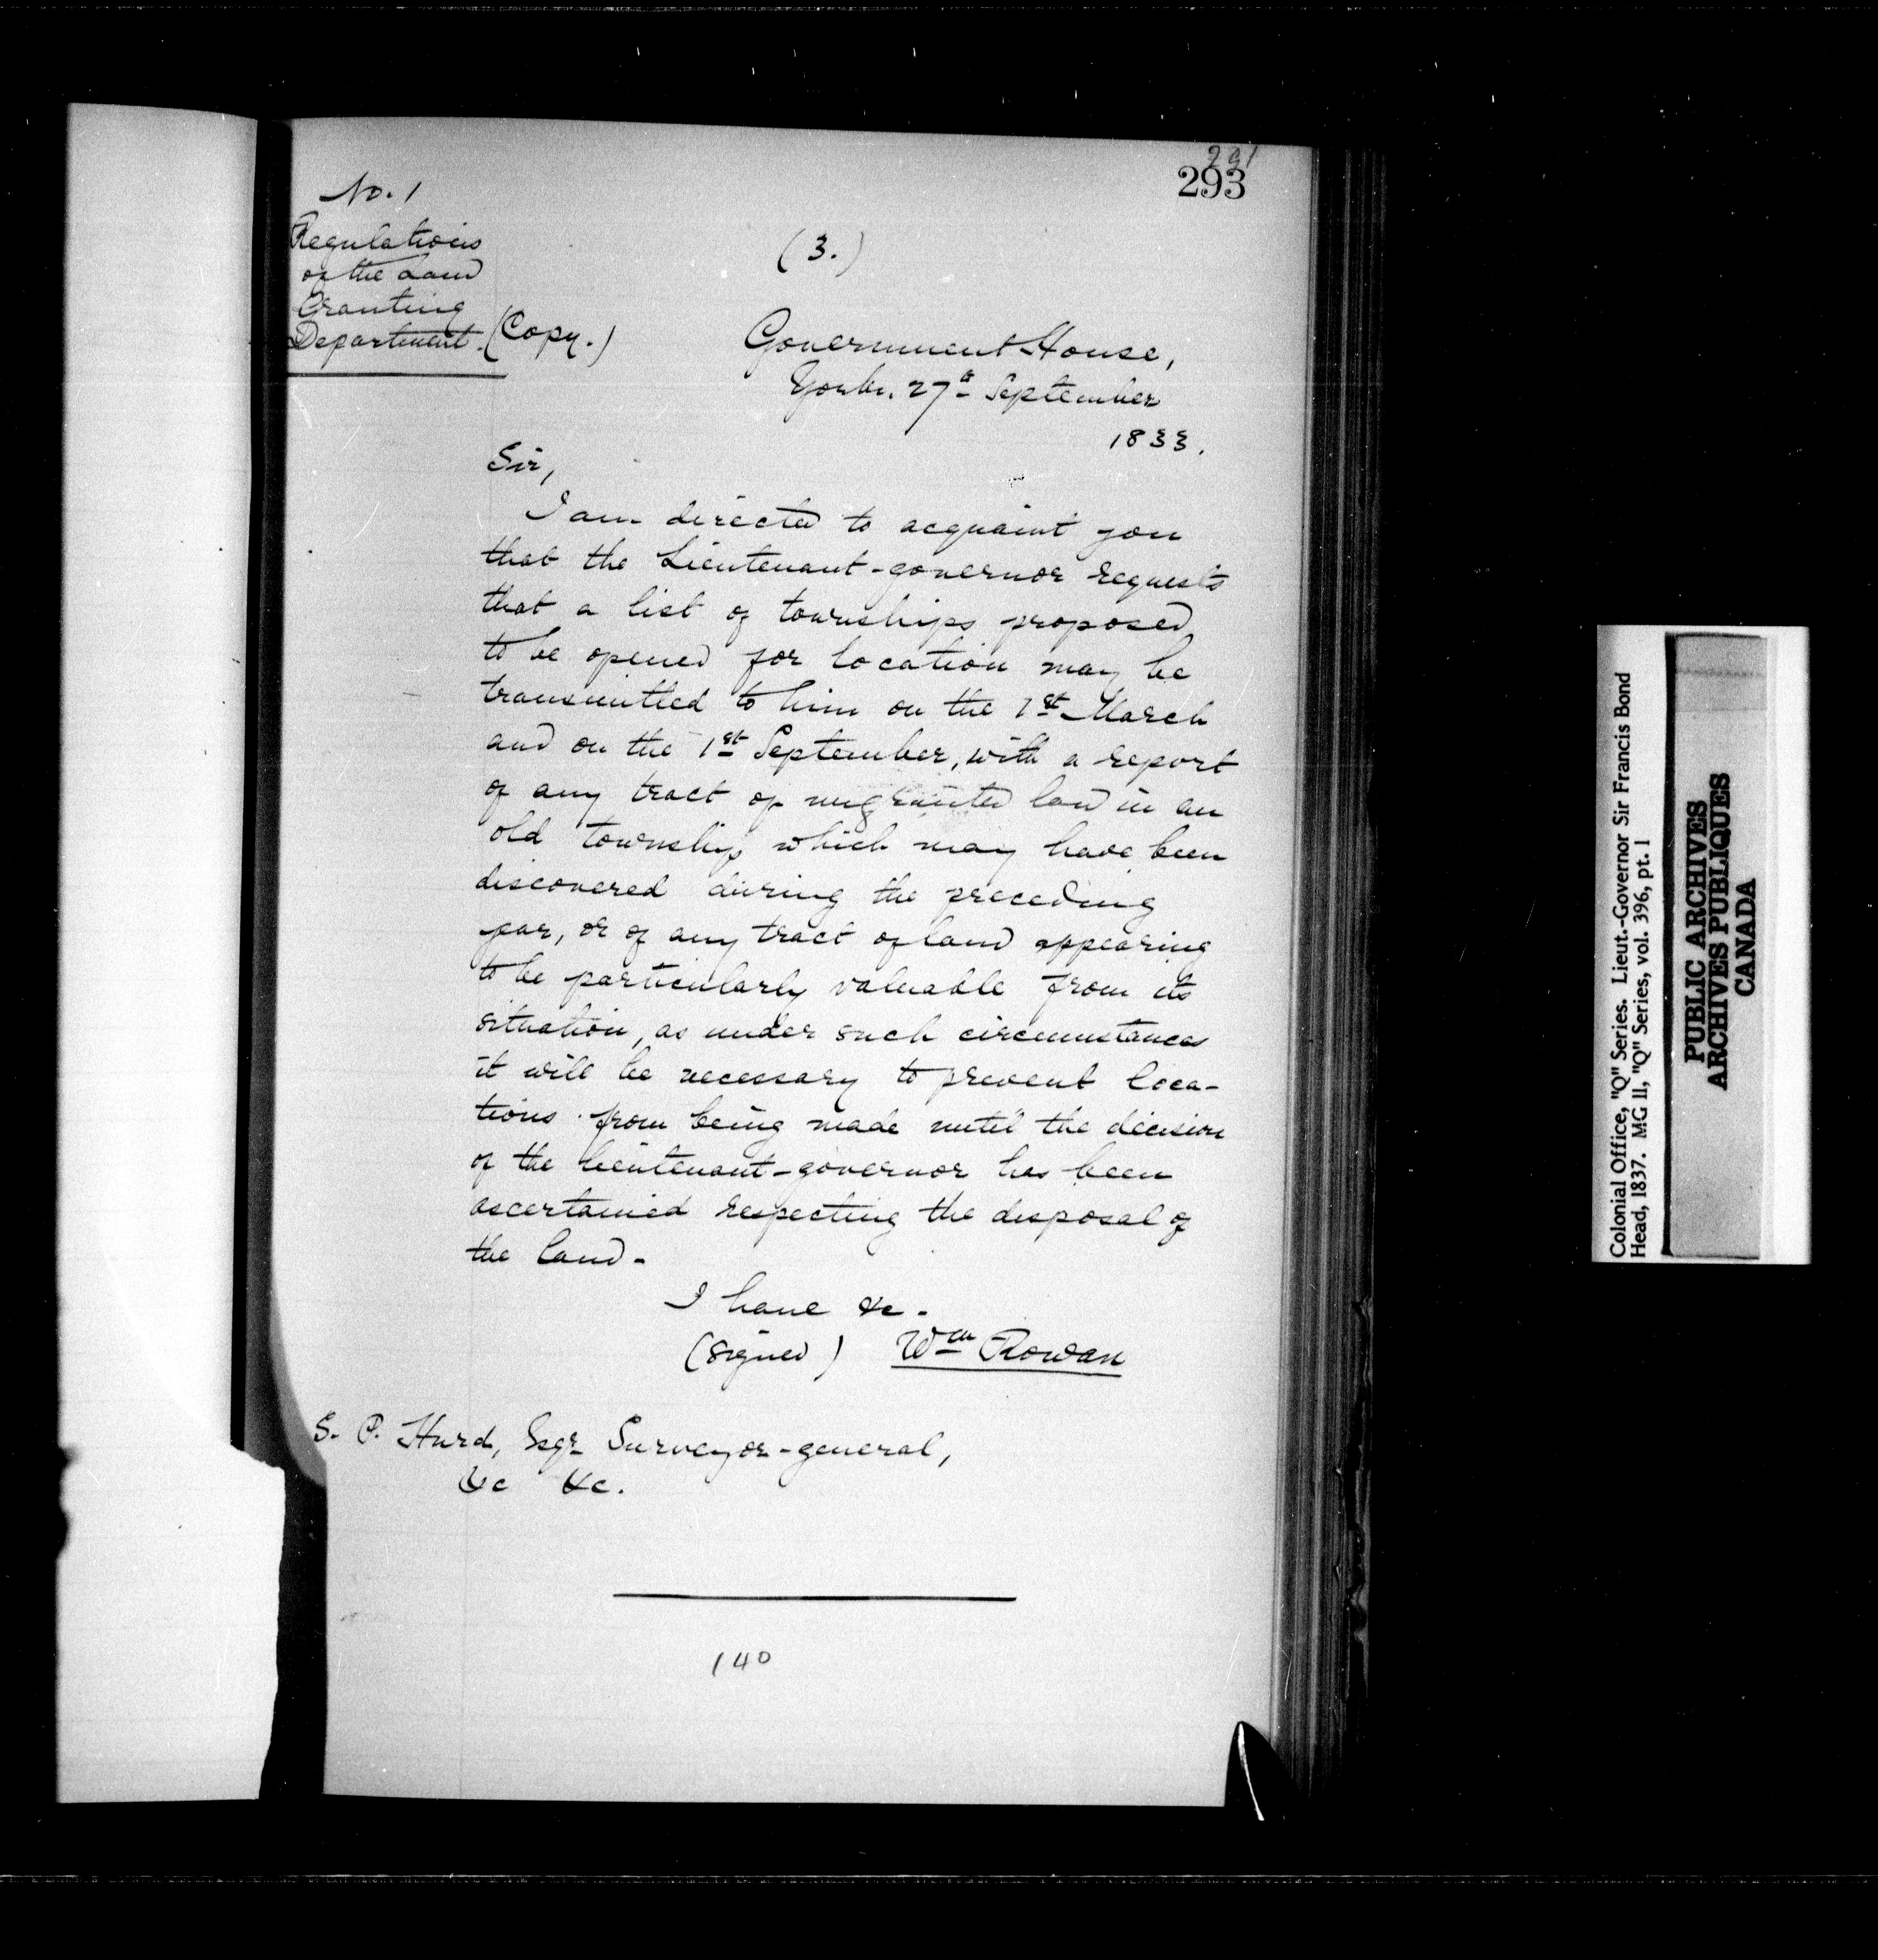 291
293
No. 1
Regulations
of the Land
Granting
Department.
(Copy.)
(3.)
Government House,
York. 27th September
1833.
Sir,
I am directed to acquaint you
that the Lieutenant-governor requests
that a list of townships proposed
to be opened for location may be
transmitted to him on the 1st March
and on the 1st September, with a report
of any tract of ungranted land in an
old township which may have been
discovered during the preceding
year, or of any tract of land appearing
to be particularly valuable from its
situation, as under such circumstances
it will be necessary to prevent loca-
tions from being made until the decision
of the lieutenant-governor has been
ascertained respecting the disposal of
the land.
I have &c.
(signed) Wm Rowan
S. P. Hurd, Esqr Surveyor-general,
&c &c.
140
Colonial Office, "Q" Series. Lieut.-Governor Sir Francis Bond
Head, 1837. MG 11, "Q" Series, vol. 396, pt. 1
PUBLIC ARCHIVES
ARCHIVES PUBLIQUES
CANADA